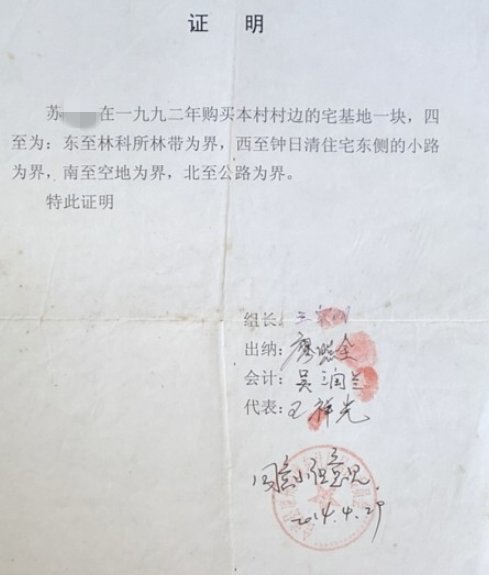 证 明
苏 在一九九二年购买本村村边的宅基地一块，四
至为：东至林科所林带为界，西至钟日清住宅东侧的小路
为界，南至空地为界，北至公路为界。
特此证明
组长：王
出纳：廖 全
会计：吴润兰
代表：王祥光
同意小组意见
2014.4.29